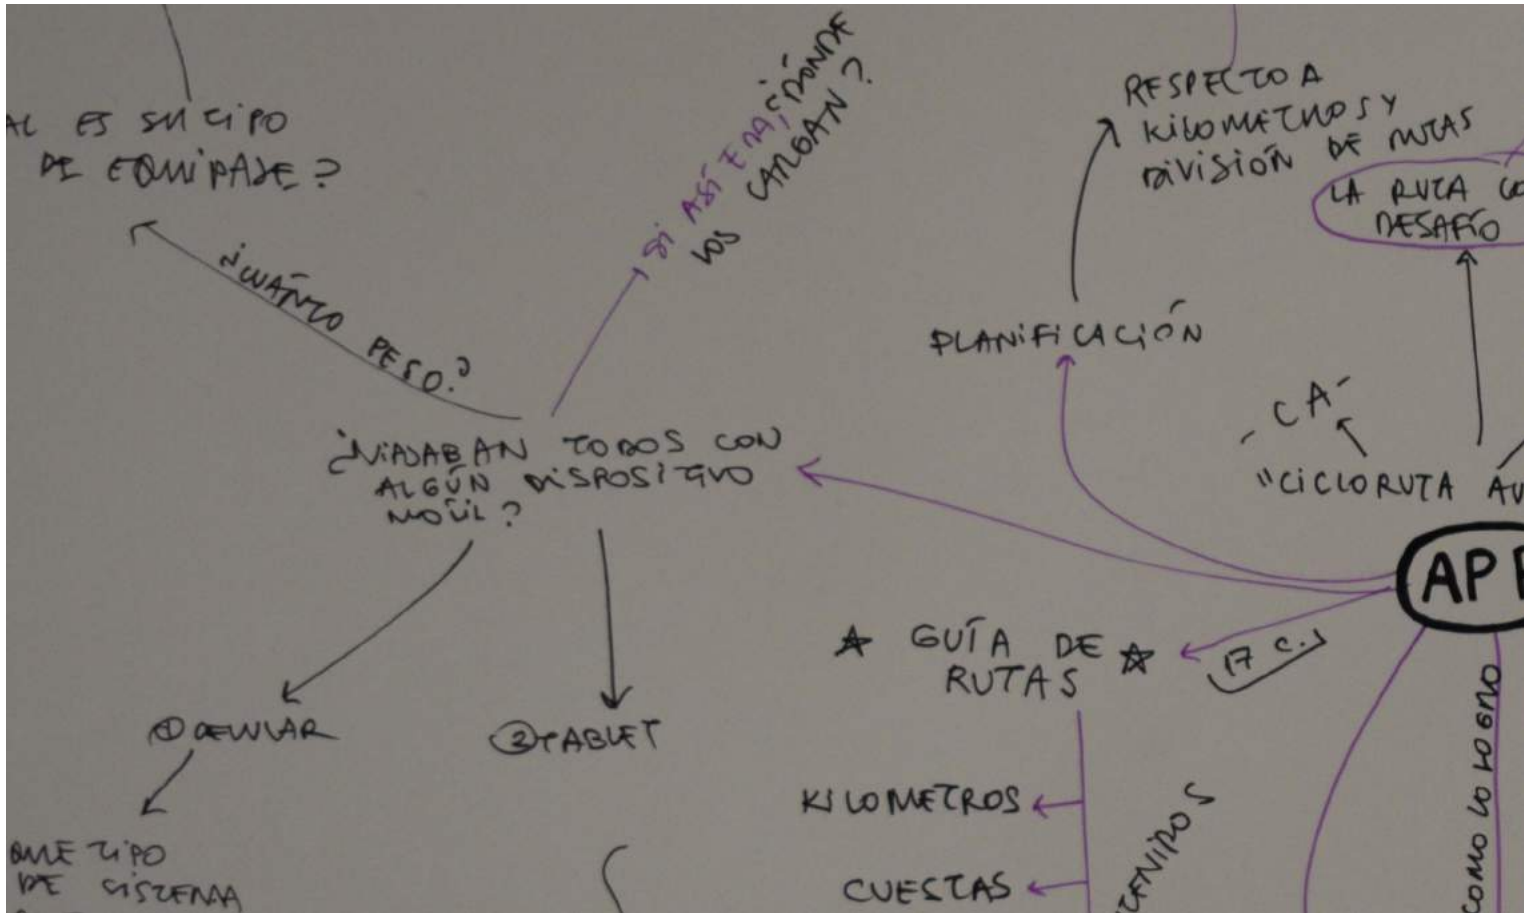 AL ES SU TIPO
DE EQUIPAJE?
¿CUÁNTO PESO?
SI ASÍ ERA, ¿DÓNDE
LOS CARGAN?
¿VIAJABAN TODOS CON
ALGÚN DISPOSITIVO
MOVIL?
① CELULAR
② TABLET
QUE TIPO
DE SISTEMA
RESPECTO A
KILOMETROS Y
DIVISIÓN DE RUTAS
LA RUTA CO
DESAFÍO
PLANIFICACIÓN
- CA -
"CICLORUTA AU
AP
GUÍA DE
RUTAS
17 C.
KILOMETROS
CUESTAS
TENIDOS
COMO LO LOGRO